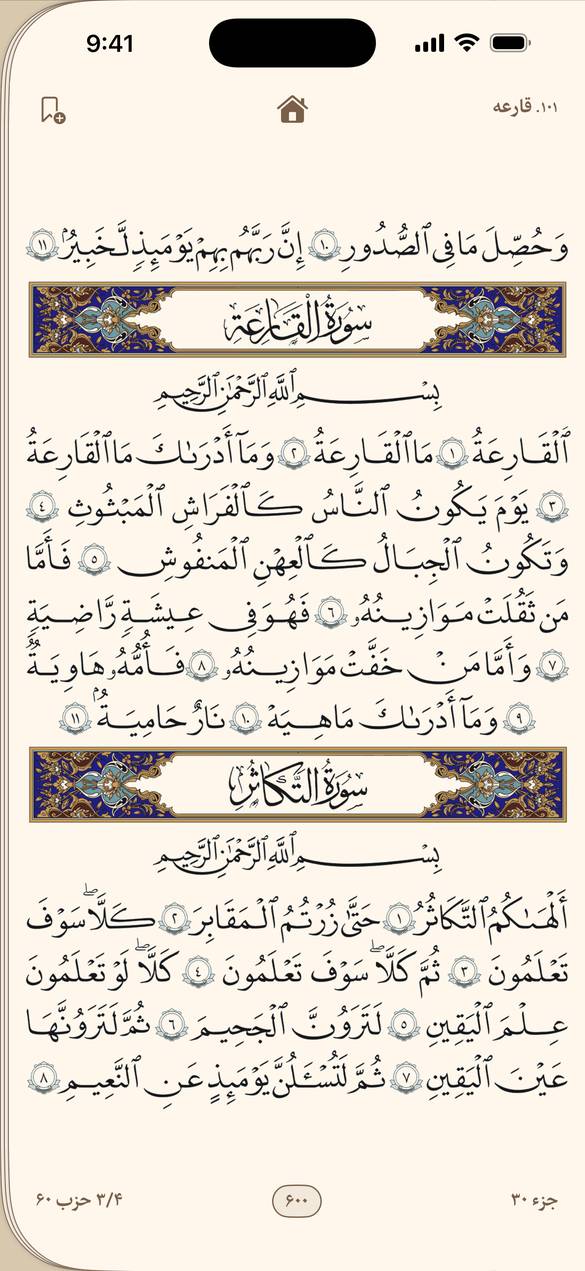 9:41
۱۰۱. قارعه
وَحُصِّلَ مَا فِى ٱلصُّدُورِ ١٠ إِنَّ رَبَّهُم بِهِمْ يَوْمَئِذٍ لَّخَبِيرٌۢ ١١
سُورَةُ الْقَارِعَةِ
بِسْمِ ٱللَّهِ ٱلرَّحْمَٰنِ ٱلرَّحِيمِ
ٱلْقَارِعَةُ ١ مَا ٱلْقَارِعَةُ ٢ وَمَآ أَدْرَىٰكَ مَا ٱلْقَارِعَةُ
٣ يَوْمَ يَكُونُ ٱلنَّاسُ كَٱلْفَرَاشِ ٱلْمَبْثُوثِ ٤
وَتَكُونُ ٱلْجِبَالُ كَٱلْعِهْنِ ٱلْمَنفُوشِ ٥ فَأَمَّا
مَن ثَقُلَتْ مَوَازِينُهُۥ ٦ فَهُوَ فِى عِيشَةٍ رَّاضِيَةٍ
٧ وَأَمَّا مَنْ خَفَّتْ مَوَازِينُهُۥ ٨ فَأُمُّهُۥ هَاوِيَةٌ
٩ وَمَآ أَدْرَىٰكَ مَا هِيَهْ ١٠ نَارٌ حَامِيَةٌۢ ١١
سُورَةُ التَّكَاثُرِ
بِسْمِ ٱللَّهِ ٱلرَّحْمَٰنِ ٱلرَّحِيمِ
أَلْهَىٰكُمُ ٱلتَّكَاثُرُ ١ حَتَّىٰ زُرْتُمُ ٱلْمَقَابِرَ ٢ كَلَّاۖ سَوْفَ
تَعْلَمُونَ ٣ ثُمَّ كَلَّاۖ سَوْفَ تَعْلَمُونَ ٤ كَلَّاۖ لَوْ تَعْلَمُونَ
عِلْمَ ٱلْيَقِينِ ٥ لَتَرَوُنَّ ٱلْجَحِيمَ ٦ ثُمَّ لَتَرَوُنَّهَا
عَيْنَ ٱلْيَقِينِ ٧ ثُمَّ لَتُسْـَٔلُنَّ يَوْمَئِذٍ عَنِ ٱلنَّعِيمِ ٨
جزء ۳۰
۶۰۰
۳/۴ حزب ۶۰